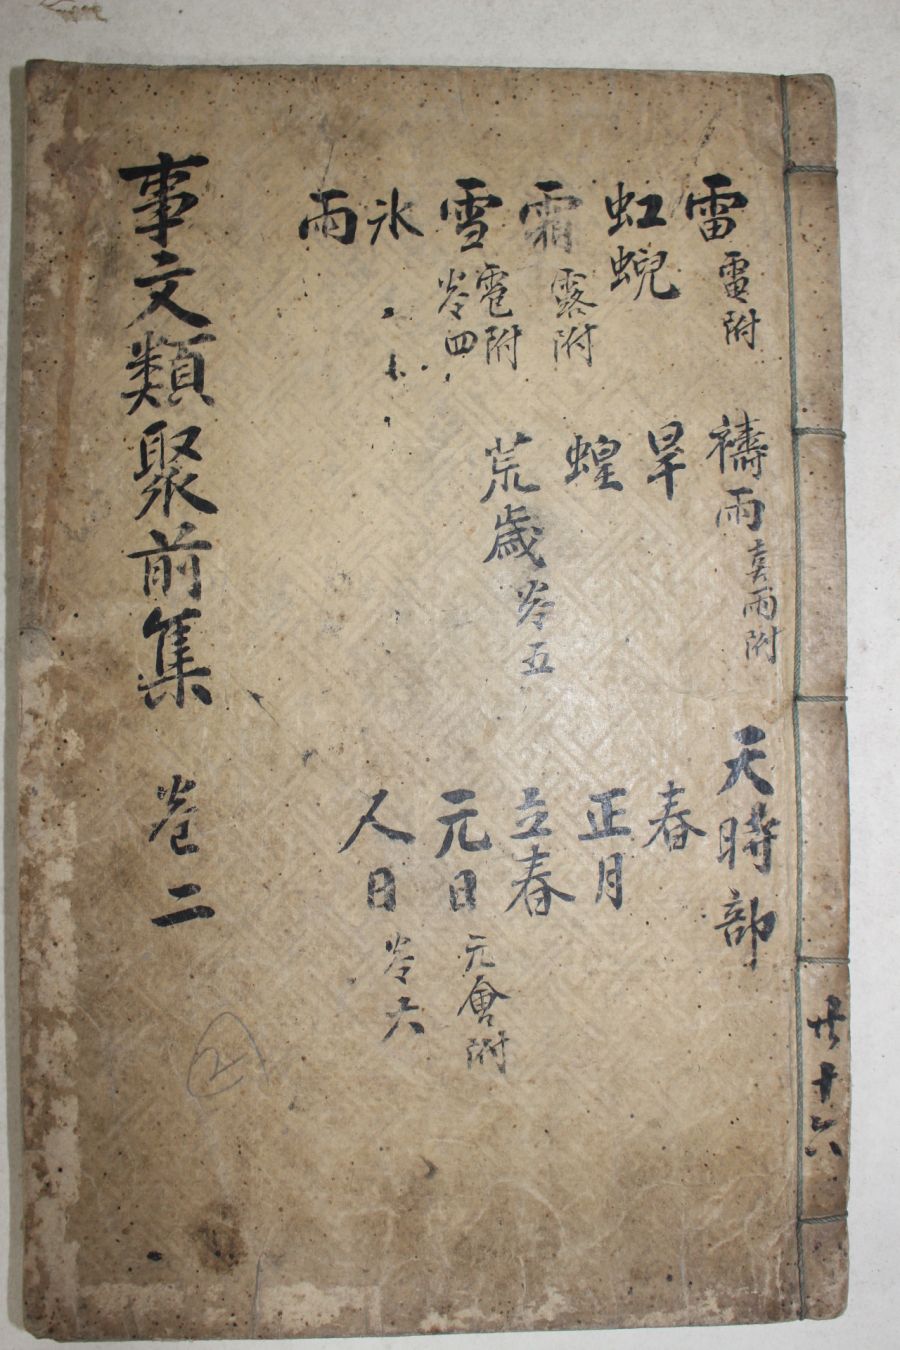 雷 電附
虹蜺
霜 露附
雪 雹附 卷四
氷
雨
禱雨 喜雨附
旱
蝗
荒歲 卷五
天時部
春
正月
立春
元日 元會附
人日 卷六
事文類聚前集 卷二
2
共十六